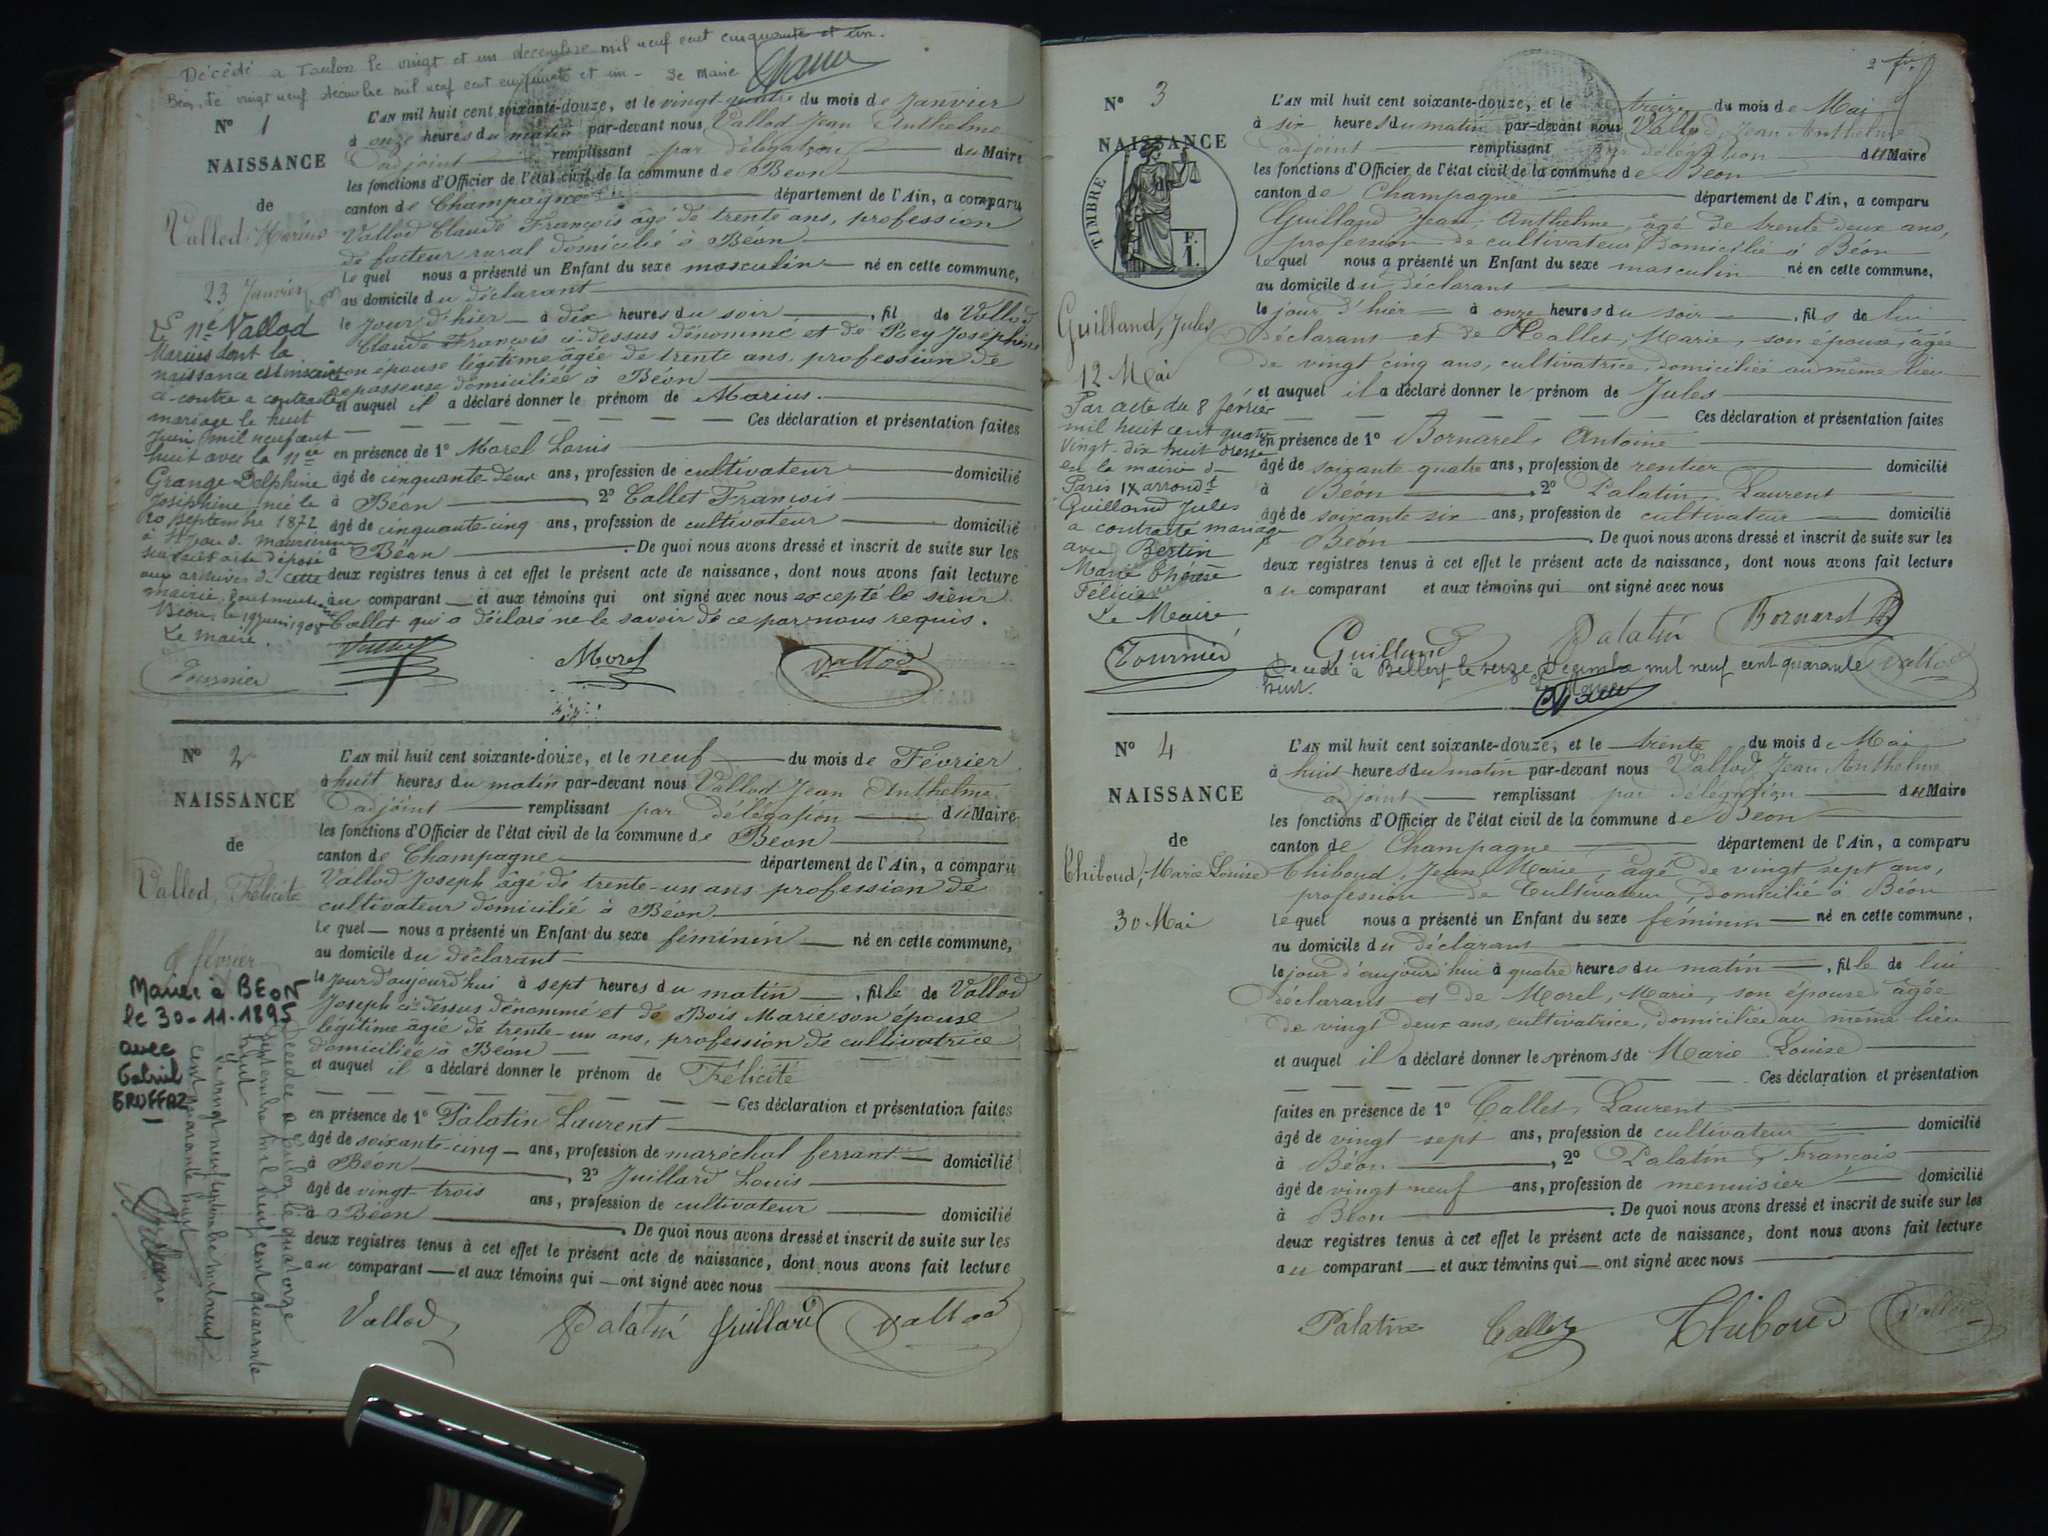 Décédé à Toulon le vingt et un décembre mil neuf cent cinquante et un.
Béon, le vingt neuf décembre mil neuf cent cinquante et un - Le Maire
N° 1
NAISSANCE
de
Vallod Marius
23 Janvier
L'AN mil huit cent soixante-douze, et le vingt-quatre du mois de Janvier
à onze heures du matin par-devant nous Vallod Jean Anthelme
adjoint remplissant par délégation du Maire
les fonctions d'Officier de l'état civil de la commune de Béon
canton de Champagne département de l'Ain, a comparu
Vallod Claude François âgé de trente ans, profession
de facteur rural domicilié à Béon
Le quel nous a présenté un Enfant du sexe masculin né en cette commune,
au domicile du déclarant
le jour d'hier à dix heures du soir, fil de Vallod
Claude François ci-dessus dénommé et de Rey Joséphine
son épouse légitime âgée de trente ans, profession de
repasseuse domiciliée à Béon
et auquel il a déclaré donner le prénom de Marius.
Ces déclaration et présentation faites
en présence de 1° Morel Louis
âgé de cinquante deux ans, profession de cultivateur domicilié
à Béon, 2° Callet François
âgé de cinquante-cinq ans, profession de cultivateur domicilié
à Béon. De quoi nous avons dressé et inscrit de suite sur les
deux registres tenus à cet effet le présent acte de naissance, dont nous avons fait lecture
au comparant et aux témoins qui ont signé avec nous excepté le sieur
Callet qui a déclaré ne le savoir de ce par nous requis.
Morel Vallod
Le né Vallod
Marius dont la
naissance est inscrite
ci-contre a contracté
mariage le huit
Juin mil neuf cent
huit avec la née
Grange Delphine
Joséphine née le
20 septembre 1872
à St Jean d. Maurienne
aux archives de cette
mairie. Dont mention
Béon, le 19 juin 1908
Le maire.
Tournier
N° 2
NAISSANCE
de
Vallod, Félicité
9 février
L'AN mil huit cent soixante-douze, et le neuf du mois de Février
à huit heures du matin par-devant nous Vallod Jean Anthelme
adjoint remplissant par délégation du Maire
les fonctions d'Officier de l'état civil de la commune de Béon
canton de Champagne département de l'Ain, a comparu
Vallod Joseph âgé de trente-un ans profession de
cultivateur domicilié à Béon
Le quel nous a présenté un Enfant du sexe féminin né en cette commune,
au domicile du déclarant
le jour d'aujourd'hui à sept heures du matin, fille de Vallod
Joseph ci-dessus dénommé et de Bois Marie son épouse
légitime âgée de trente-un ans, profession de cultivatrice
domiciliée à Béon
et auquel il a déclaré donner le prénom de Félicité
Ces déclaration et présentation faites
en présence de 1° Palatin Laurent
âgé de soixante-cinq ans, profession de maréchal ferrant domicilié
à Béon, 2° Juillard Louis
âgé de vingt trois ans, profession de cultivateur domicilié
à Béon. De quoi nous avons dressé et inscrit de suite sur les
deux registres tenus à cet effet le présent acte de naissance, dont nous avons fait lecture
au comparant et aux témoins qui ont signé avec nous
Vallod Palatin Juillard Vallod
Mariée à BEON
le 30-11-1895
avec
Gabriel
GRUFFAZ
Décédée à Culoz le quatorze
septembre mil neuf cent quarante
huit
Le vingt neuf septembre mil neuf
cent quarante huit
2
N° 3
NAISSANCE
TIMBRE
F.
1.
Guilland, Jules
12 Mai
L'AN mil huit cent soixante-douze, et le treize du mois de Mai
à six heures du matin par-devant nous Vallod, Jean Anthelme
adjoint remplissant par délégation du Maire
les fonctions d'Officier de l'état civil de la commune de Béon
canton de Champagne département de l'Ain, a comparu
Guilland Jean Anthelme, âgé de trente deux ans,
profession de cultivateur, domicilié à Béon
Le quel nous a présenté un Enfant du sexe masculin né en cette commune,
au domicile du déclarant
le jour d'hier à onze heures du soir, fils de lui
déclarant et de Callet, Marie, son épouse, âgée
de vingt cinq ans, cultivatrice, domiciliée au même lieu
et auquel il a déclaré donner le prénom de Jules
Ces déclaration et présentation faites
en présence de 1° Bornarel, Antoine
âgé de soixante quatre ans, profession de rentier domicilié
à Béon, 2° Palatin, Laurent
âgé de soixante six ans, profession de cultivateur domicilié
à Béon. De quoi nous avons dressé et inscrit de suite sur les
deux registres tenus à cet effet le présent acte de naissance, dont nous avons fait lecture
au comparant et aux témoins qui ont signé avec nous
Guilland Palatin Bornarel Vallod
Par acte du 8 février
mil huit cent quatre
vingt-dix huit dressé
en la mairie d
Paris IX arrondt
Guilland Jules
a contracté mariage
avec Bertin
Marie Thérèse
Félicie
Le Maire
Tournier
Décédé à Belley le seize décembre mil neuf cent quarante
huit.
N° 4
NAISSANCE
de
Thiboud, Marie Louise
30 Mai
L'AN mil huit cent soixante-douze, et le trente du mois de Mai
à huit heures du matin par-devant nous Vallod Jean Anthelme
adjoint remplissant par délégation du Maire
les fonctions d'Officier de l'état civil de la commune de Béon
canton de Champagne département de l'Ain, a comparu
Thiboud, Jean Marie, âgé de vingt sept ans,
profession de cultivateur, domicilié à Béon
Le quel nous a présenté un Enfant du sexe féminin né en cette commune,
au domicile du déclarant
le jour d'aujourd'hui à quatre heures du matin, fille de lui
déclarant et de Morel, Marie, son épouse, âgée
de vingt deux ans, cultivatrice, domiciliée au même lieu
et auquel il a déclaré donner les prénoms de Marie Louise
Ces déclaration et présentation
faites en présence de 1° Callet, Laurent
âgé de vingt sept ans, profession de cultivateur domicilié
à Béon, 2° Palatin, François
âgé de vingt neuf ans, profession de menuisier domicilié
à Béon. De quoi nous avons dressé et inscrit de suite sur les
deux registres tenus à cet effet le présent acte de naissance, dont nous avons fait lecture
au comparant et aux témoins qui ont signé avec nous
Palatin Callet Thiboud Vallod